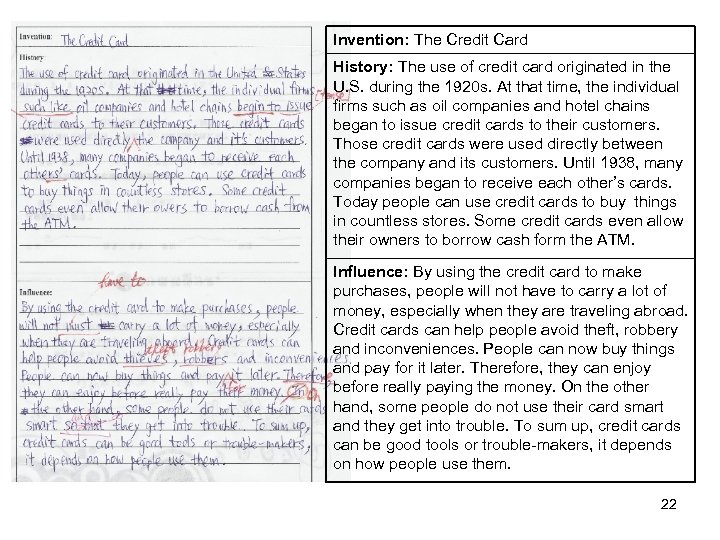 Invention: The Credit Card
History
The use of credit card originated in the United States
during the 1920s. At that time, the individual firms
such like oil companies and hotel chains begin to issue
credit cards to their customers. Those credit cards
were used directly the company and it's customers.
Until 1938, many companies began to receive each
others' cards. Today, people can use credit cards
to buy things in countless stores. Some credit
cards even allow their owers to borrow cash from
the ATM.
have to
Influence:
By using the credit card to make purchases, people
will not must carry a lot of money, especially
when they are traveling aboard. Credit cards can
theft robbery
help people avoid thieves, robbers and inconveniences.
People can now buy things and pay it later. Therefore,
for
they can enjoy before really pay their money. On
the other hand, some people do not use their cards
smart so that they get into trouble. To sum up,
credit cards can be good tools or trouble-makers,
it depends on how people use them.
Invention: The Credit Card
History: The use of credit card originated in the
U. S. during the 1920s. At that time, the individual
firms such as oil companies and hotel chains
began to issue credit cards to their customers.
Those credit cards were used directly between
the company and its customers. Until 1938, many
companies began to receive each other's cards.
Today people can use credit cards to buy things
in countless stores. Some credit cards even allow
their owners to borrow cash form the ATM.
Influence: By using the credit card to make
purchases, people will not have to carry a lot of
money, especially when they are traveling abroad.
Credit cards can help people avoid theft, robbery
and inconveniences. People can now buy things
and pay for it later. Therefore, they can enjoy
before really paying the money. On the other
hand, some people do not use their card smart
and they get into trouble. To sum up, credit cards
can be good tools or trouble-makers, it depends
on how people use them.
22